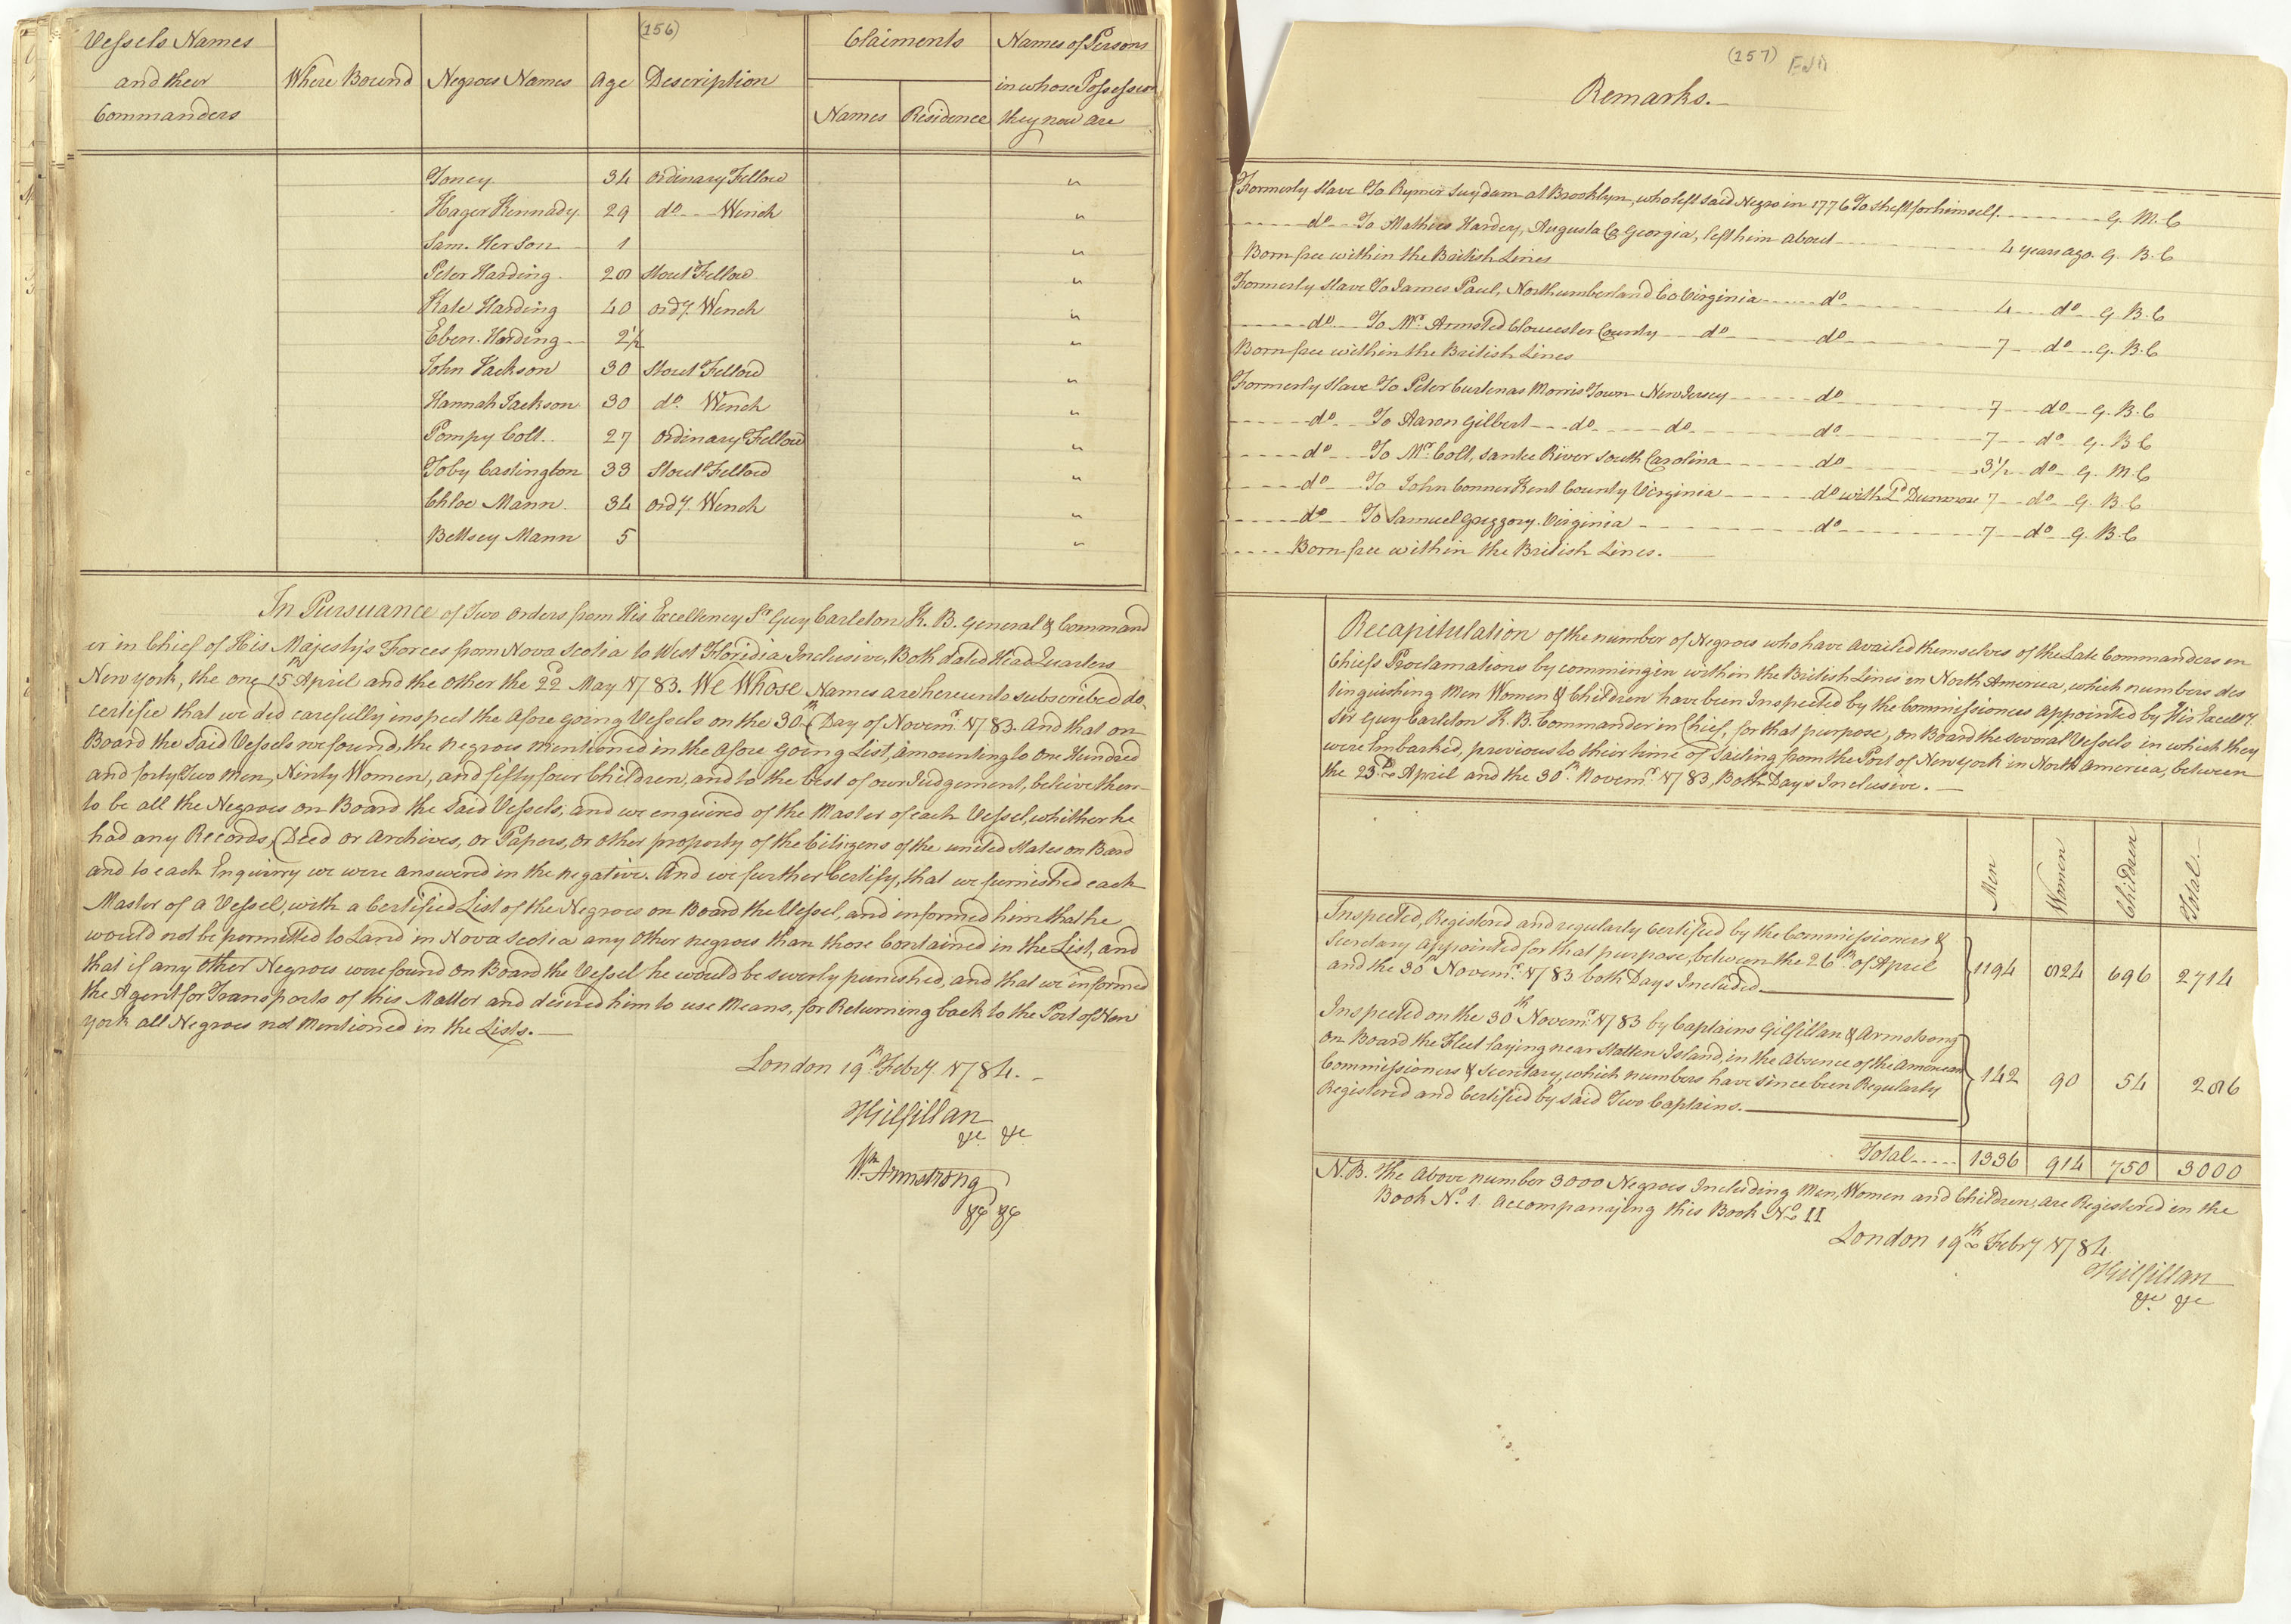 (156)
Vessels Names and their Commanders | Where Bound | Negroes Names | Age | Description | Claiments Names | Residence | Names of Persons in whose Possession they now are
Toney | 34 | Ordinary Fellow | "
Hager Kennady | 29 | do. Wench | "
Sam. Her Son | 1 | "
Peter Harding | 28 | Stout Fellow | "
Kate Harding | 40 | Ordy. Wench | "
Eben. Harding | 2½ | "
John Jackson | 30 | Stout Fellow | "
Hannah Jackson | 30 | do. Wench | "
Pompy Colt | 27 | Ordinary Fellow | "
Toby Castington | 33 | Stout Fellow | "
Chloe Mann | 34 | Ordy. Wench | "
Bettsey Mann | 5 | "
In Pursuance of Two Orders from His Excellency Sr. Guy Carleton K. B. General & Command
er in Chief of His Majesty's Forces from Nova Scotia to West Floridia Inclusive, Both dated Head Quarters
New york, the one 15th April and the other the 22d May 1783. We Whose Names are hereunto subscribed do
certifie that we did carefully inspect the afore going Vessels on the 30th Day of Novemr. 1783. And that on
Board the said Vessels we found, the negroes mentioned in the afore going List, amounting to One Hundred
and forty Two Men, Ninty Women, and fifty four Children, and to the best of our Judgement, believe them
to be all the Negroes on Board the said Vessels, and we enquired of the Master of each Vessel, whither he
had any Records, Deed or Archives, or Papers, or other property of the Citizens of the united States on Bard
and to each Enquirry we were answered in the negative. And we further Certify, that we furnished each
Master of a Vessel, with a Certified List of the Negroes on Board the Vessel, and informed him that he
would not be permitted to Land in Nova Scotia any Other negroes than those Contained in the List, and
that if any other Negroes were found on Board the Vessel he would be severly punished, and that we informed
the Agent for Transports of this Matter and desired him to use Means, for Returning back to the Port of New
york all Negroes not Mentioned in the Lists.
London 19th Febry. 1784.
TGilfillan
&c. &c.
Wm. Armstrong
&c &c
(157)
Remarks.
Formerly slave To Rymer Suydam at Brooklyn, who left said Negro in 1776 To shift for himself. G. M. C
do To Mathew Hardey, Augusta Co. Georgia, left him about 4 years ago. G. B. C
Born free within the British Lines
Formerly slave To James Paul, Northumberland Co. Virginia do 4 do G. B. C
do To Mr. Armsted Gloucester County do do 7 do G. B. C
Born free within the British Lines
Formerly slave To Peter Curtenas Morris Town New Jersey do 7 do G. B. C
do To Aaron Gilbert do do do 7 do G. B C
do To Mr. Colt, Santee River South Carolina do 3½ do G. M. C
do To John Conner Kent County Virginia do with Ld. Dunmore 7 do G. B. C
do To Samuel Greggory. Virginia do 7 do G. B. C
Born free within the British Lines.
Recapitulation of the number of Negroes who have availed themselves of the Late Commanders in
Chiefs Proclamations by comming in within the British Lines in North America, which numbers des
tinguishing Men Women & Children have been Inspected by the Commissioners appointed by His Excelly.
Sir Guy Carleton K. B. Commander in Chief, for that purpose, on Board the several Vessels in which they
were Embarked, previous to their time of Sailing from the Port of New york in North America, between
the 23d. April and the 30th. Novemr. 1783, Both Days Inclusive.
Men | Women | Children | Total.
Inspected, Registered and regularly Certified by the Commissioners &
Secretary appointed for that purpose, between the 26th. of April
and the 30th Novemr. 1783 both Days Included | 1194 | 824 | 696 | 2714
Inspected on the 30th Novemr. 1783 by Captains Gilfillan & Armstrong
on Board the Fleet laying near Statten Island, in the Absence of the American
Commissioners & Secretary, which numbers have since been Regularly
Registered and Certified by said Two Captains. | 142 | 90 | 54 | 286
Total | 1336 | 914 | 750 | 3000
N.B. The above number 3000 Negroes Including Men, Women and Children, are Registered in the
Book No. 1. accompanying this Book No. II
London 19th Febry 1784
TGilfillan
&c. &c